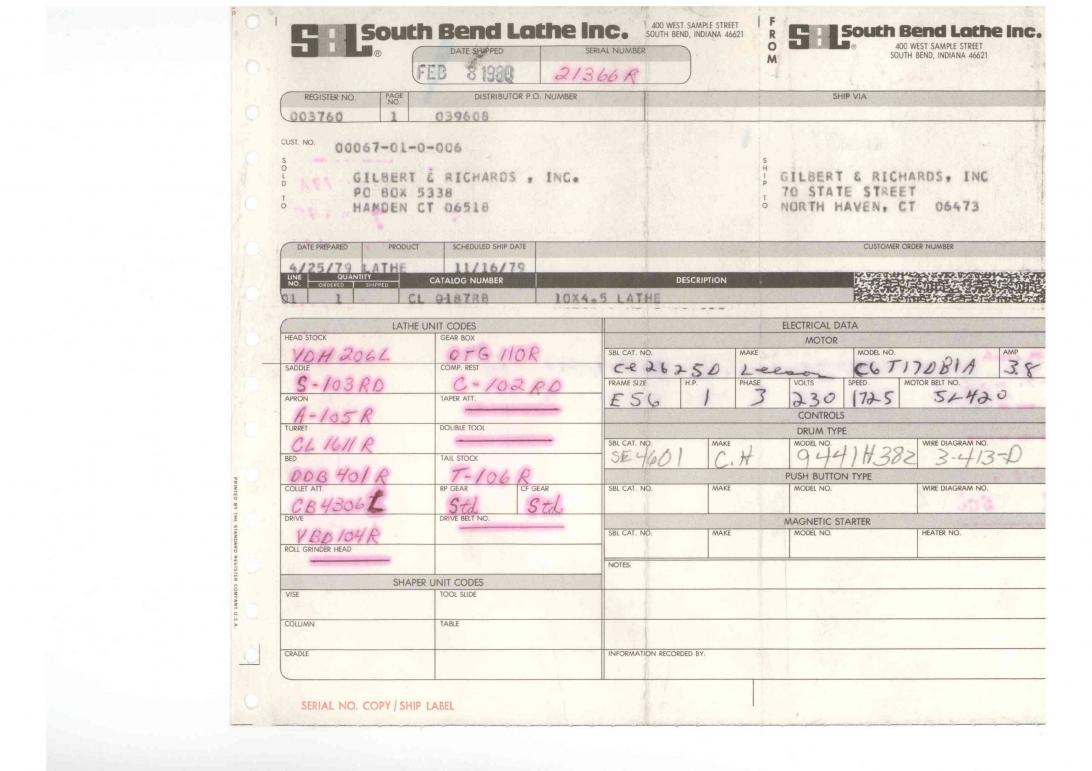 SBL South Bend Lathe Inc. ®
400 WEST SAMPLE STREET
SOUTH BEND, INDIANA 46621
FROM
SBL South Bend Lathe Inc. ®
400 WEST SAMPLE STREET
SOUTH BEND, INDIANA 46621
DATE SHIPPED SERIAL NUMBER
FEB 8 1980 21366R
REGISTER NO. PAGE NO. DISTRIBUTOR P.O. NUMBER SHIP VIA
003760 1 039608
CUST. NO. 00067-01-0-006
SOLD TO
GILBERT & RICHARDS , INC.
PO BOX 5338
HAMDEN CT 06518
SHIP TO
GILBERT & RICHARDS, INC
70 STATE STREET
NORTH HAVEN, CT 06473
DATE PREPARED PRODUCT SCHEDULED SHIP DATE CUSTOMER ORDER NUMBER
4/25/79 LATHE 11/16/79
LINE NO. QUANTITY ORDERED SHIPPED CATALOG NUMBER DESCRIPTION
01 1 CL 0187RB 10X4.5 LATHE
LATHE UNIT CODES
HEAD STOCK GEAR BOX
YDH 206L OTG 110R
SADDLE COMP. REST
S-103RD C-102RD
APRON TAPER ATT.
A-105R
TURRET DOUBLE TOOL
CL 1611R
BED TAIL STOCK
DDB 401R T-106R
COLLET ATT. RP GEAR CF GEAR
CB4306L Std Std
DRIVE DRIVE BELT NO.
VBD 104R
ROLL GRINDER HEAD
SHAPER UNIT CODES
VISE TOOL SLIDE
COLUMN TABLE
CRADLE
ELECTRICAL DATA
MOTOR
SBL CAT. NO. MAKE MODEL NO. AMP
CE2625D Leeson C6T17DB1A 3.8
FRAME SIZE H.P. PHASE VOLTS SPEED MOTOR BELT NO.
E56 1 3 230 1725 5L420
CONTROLS
DRUM TYPE
SBL CAT. NO. MAKE MODEL NO. WIRE DIAGRAM NO.
SE4601 C.H 9441H382 3-413-D
PUSH BUTTON TYPE
SBL CAT. NO. MAKE MODEL NO. WIRE DIAGRAM NO.
MAGNETIC STARTER
SBL CAT. NO. MAKE MODEL NO. HEATER NO.
NOTES:
INFORMATION RECORDED BY:
SERIAL NO. COPY / SHIP LABEL
PRINTED BY THE STANDARD REGISTER COMPANY U.S.A.